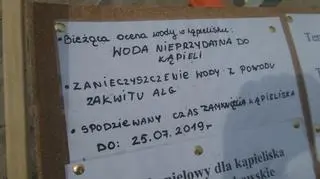 • Bieżąca ocena wody w kąpielisku:
WODA NIEPRZYDATNA DO
KĄPIELI
• ZANIECZYSZCZENIE WODY Z POWODU
ZAKWITU ALG
• SPODZIEWANY CZAS ZAMKNIĘCIA KĄPIELISKA
DO: 25.07.2019r
dla kąpieliska